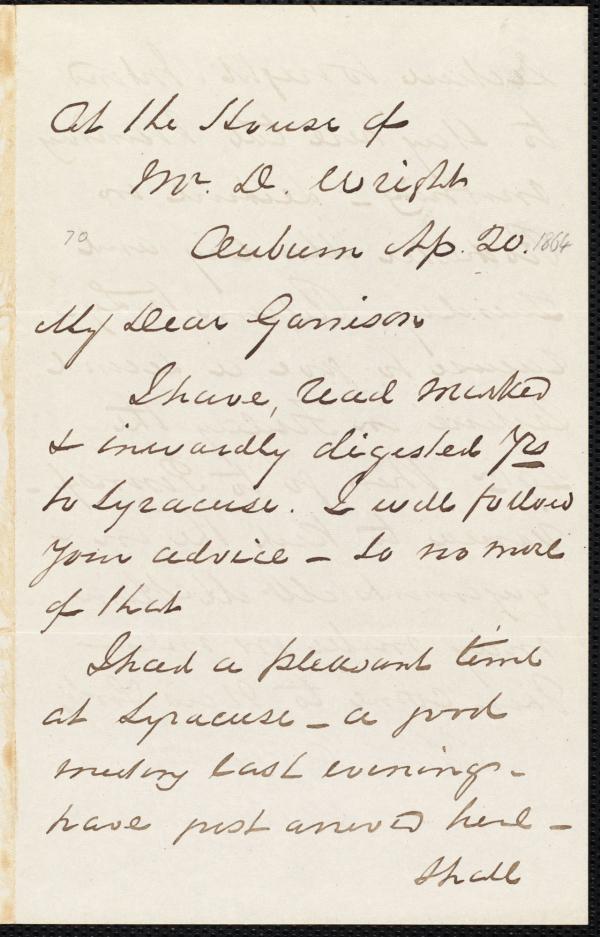 At the House of
Mr. D. Wright
70
Auburn Ap. 20. 1864
My Dear Garrison
I have, read marked
& inwardly digested Yrs
to Syracuse. I will follow
your advice – So no more
of that
I had a pleasant time
at Syracuse – a good
meeting last evening –
have just arrived here –
Shall